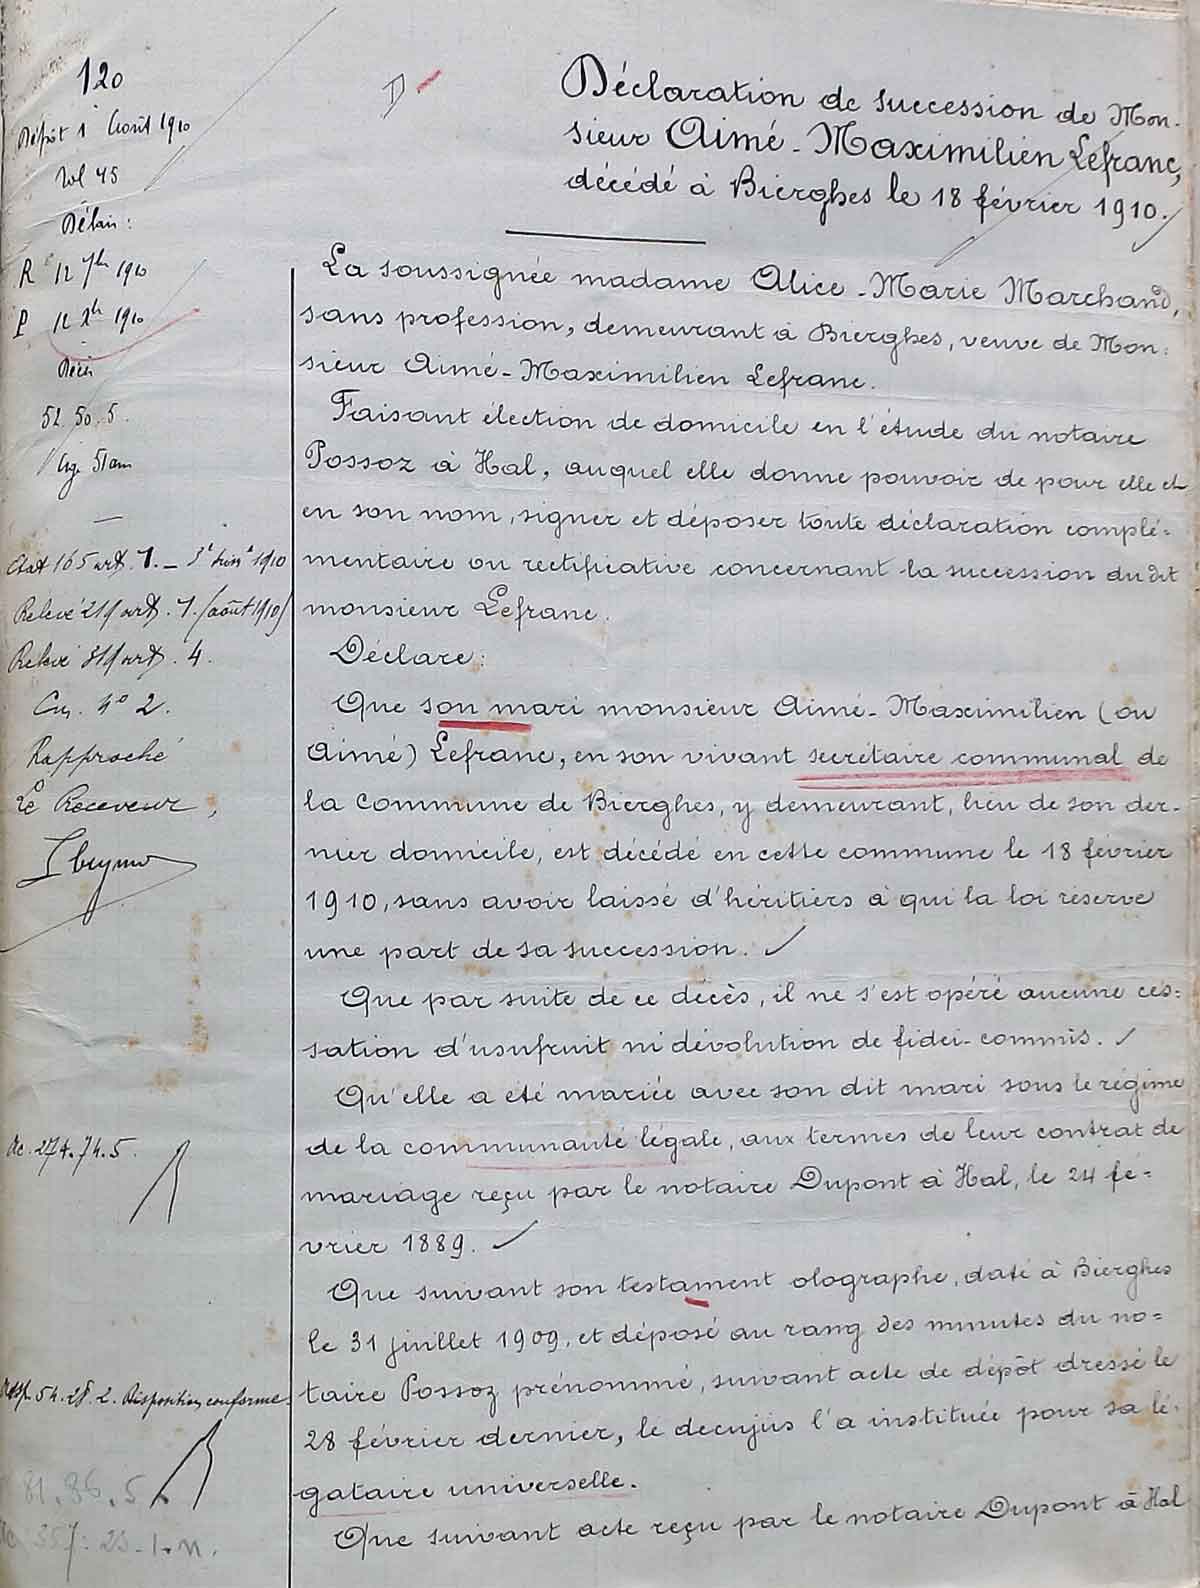 120
Dépôt 1 Avril 1910
Vol 45
Délai :
R 12 7bre 1910
P 12 Xbre 1910
Décès
52. 50. 5.
Age 51 ans
Etat 165 art. 1. _ 3e trime 1910
Relevé 219 art. 1. (août 1910)
Relevé 819 art. 4.
No 2.
Rapproché
Le Receveur,
Ac. 274. 74. 5.
54. 28. 2. Disposition conforme.
81. 86. 5.
357. 23.
D.
Déclaration de succession de Mon-
sieur Aimé-Maximilien Lefranc,
décédé à Bierghes le 18 février 1910.
La soussignée madame Alice-Marie Marchand,
sans profession, demeurant à Bierghes, veuve de Mon:
sieur Aimé-Maximilien Lefranc.
Faisant élection de domicile en l'étude du notaire
Possoz à Hal, auquel elle donne pouvoir de pour elle et
en son nom, signer et déposer toute déclaration complé=
mentaire ou rectificative concernant la succession du dit
monsieur Lefranc.
Déclare:
Que son mari monsieur Aimé-Maximilien (ou
Aimé) Lefranc, en son vivant secrétaire communal de
la commune de Bierghes, y demeurant, lieu de son der-
nier domicile, est décédé en cette commune le 18 février
1910, sans avoir laissé d'héritiers à qui la loi réserve
une part de sa succession.
Que par suite de ce décès, il ne s'est opéré aucune ces=
sation d'usufruit ni dévolution de fidei-commis.
Qu'elle a été mariée avec son dit mari sous le régime
de la communauté légale, aux termes de leur contrat de
mariage reçu par le notaire Dupont à Hal, le 24 fé-
vrier 1889.
Que suivant son testament olographe, daté à Bierghes
le 31 juillet 1909, et déposé au rang des minutes du no=
taire Possoz prénommé, suivant acte de dépôt dressé le
28 février dernier, le decujus l'a instituée pour sa lé-
gataire universelle.
Que suivant acte reçu par le notaire Dupont à Hal